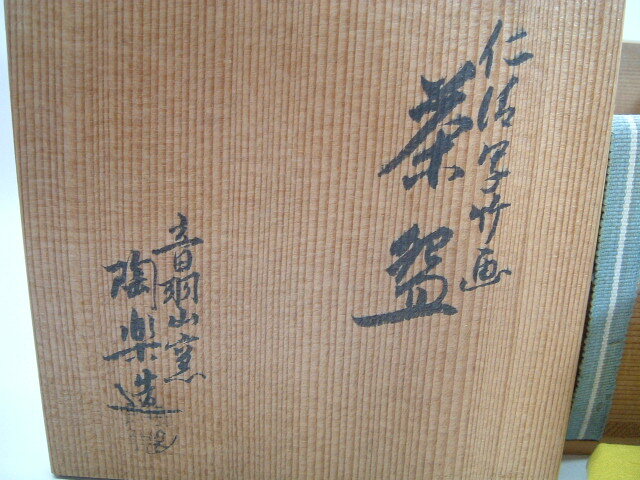 仁清写竹画
茶盌
音羽山窯
陶楽造